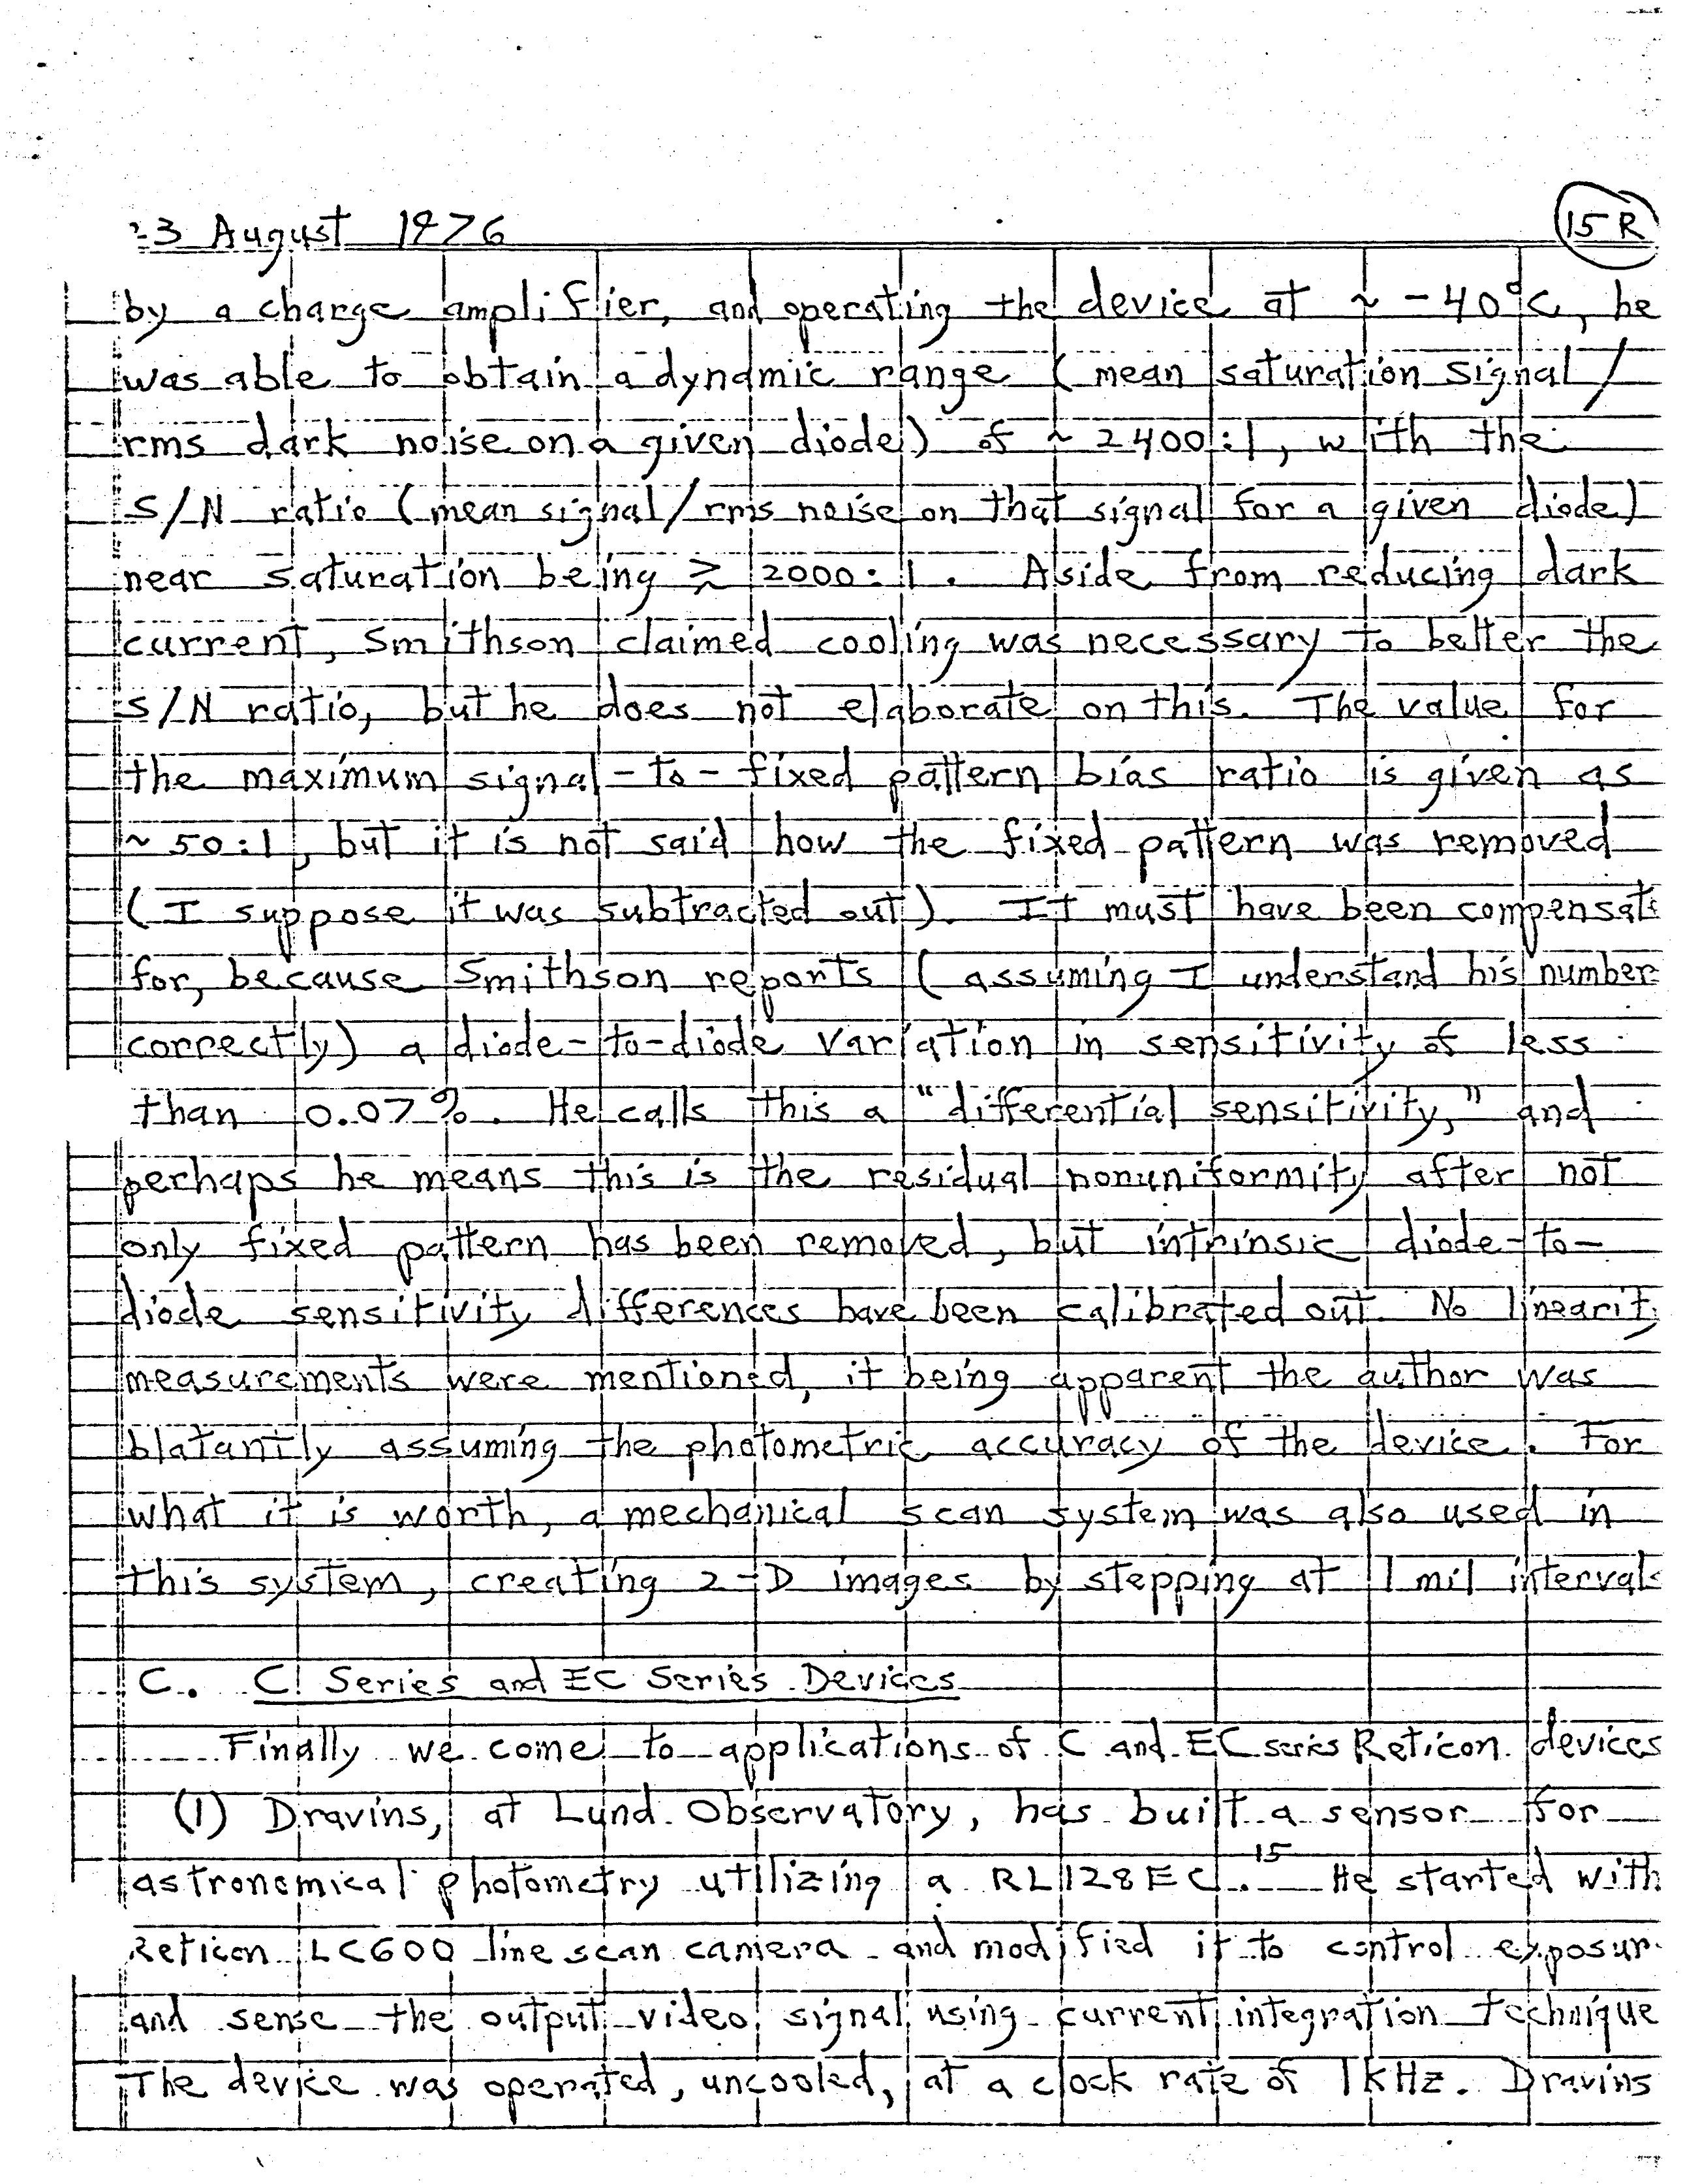 23 August 1976
15 R
by a charge amplifier, and operating the device at ~ -40°C, he
was able to obtain a dynamic range (mean saturation signal/
rms dark noise on a given diode) of ~ 2400:1, with the
S/N ratio (mean signal/rms noise on that signal for a given diode)
near saturation being ≳ 2000:1. Aside from reducing dark
current, Smithson claimed cooling was necessary to better the
S/N ratio, but he does not elaborate on this. The value for
the maximum signal-to-fixed pattern bias ratio is given as
~ 50:1, but it is not said how the fixed pattern was removed
(I suppose it was subtracted out). It must have been compensate
for, because Smithson reports (assuming I understand his number
correctly) a diode-to-diode variation in sensitivity of less
than 0.07%. He calls this a "differential sensitivity," and
perhaps he means this is the residual nonuniformity after not
only fixed pattern has been removed, but intrinsic diode-to-
diode sensitivity differences have been calibrated out. No linearity
measurements were mentioned, it being apparent the author was
blatantly assuming the photometric accuracy of the device. For
what it is worth, a mechanical scan system was also used in
this system, creating 2-D images by stepping at 1 mil intervals
C. C Series and EC Series Devices
Finally we come to applications of C and EC series Reticon devices
(1) Dravins, at Lund Observatory, has built a sensor for
astronomical photometry utilizing a RL128EC.15 He started with
Reticon LC600 line scan camera and modified it to control exposur
and sense the output video signal using current integration technique
The device was operated, uncooled, at a clock rate of 1kHz. Dravins